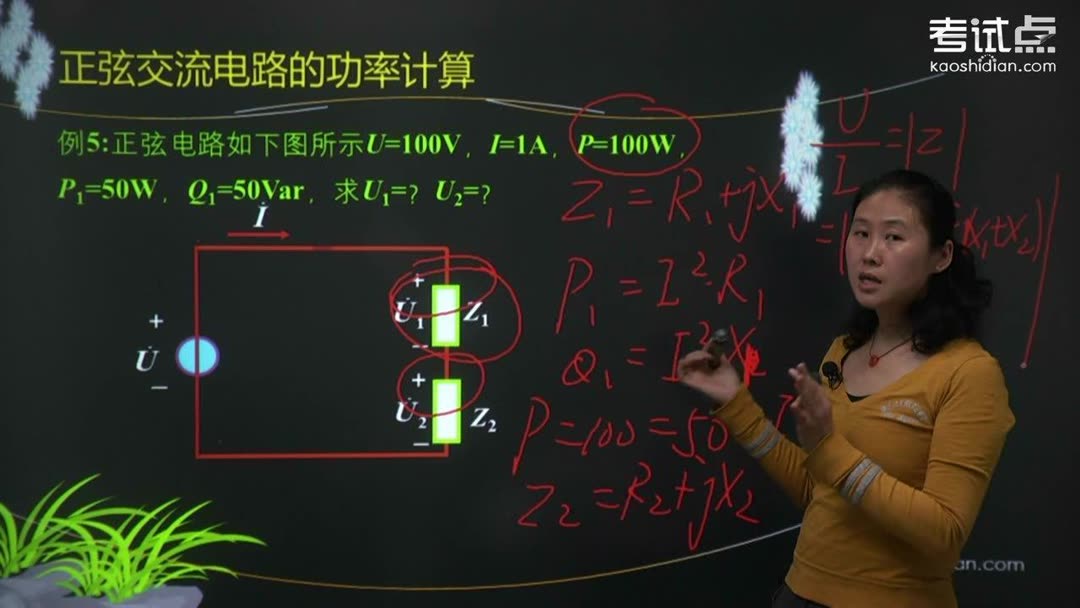 考试点
kaoshidian.com
正弦交流电路的功率计算
例5:正弦电路如下图所示U=100V，I=1A，P=100W，
P₁=50W，Q₁=50Var，求U₁=？U₂=？
İ
+
U̇
−
+
U̇₁
−
Z₁
+
U̇₂
−
Z₂
U/I=|Z|
Z₁=R₁+jX₁
X₁+X₂)|
P₁=I²·R₁
Q₁=I²X
P=100=50
Z₂=R₂+jX₂
an.com